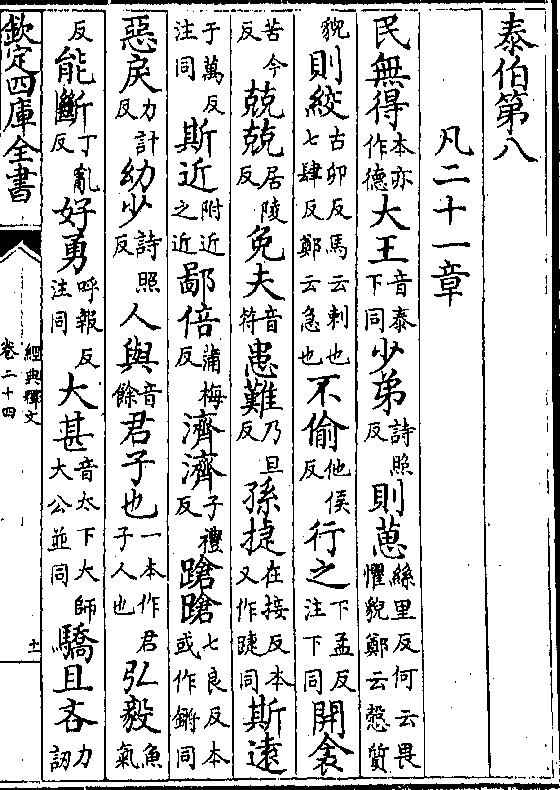 泰伯第八
凡二十一章
民無得本亦作德大王音泰下同少弟詩照反則葸絲里反何云畏懼貌鄭云慤質
貌則絞古卯反馬云刺也七肆反鄭云急也不偷他侯反行之下孟反注下同開衾
苦今反兢兢居陵反免夫音符患難乃旦反孫捷在接反本又作踕同斯遠
于萬反注同斯近附近之近鄙倍蒲梅反濟濟子禮反蹌蹌七良反本或作鏘同
惡戾力計反幼少詩照反人與音餘君子也一本作君子人也弘毅魚氣
反能斷丁亂反好勇呼報反注同大甚音太下大師大公並同驕且吝力訒
欽定四庫全書
經典釋文
卷二十四
十一